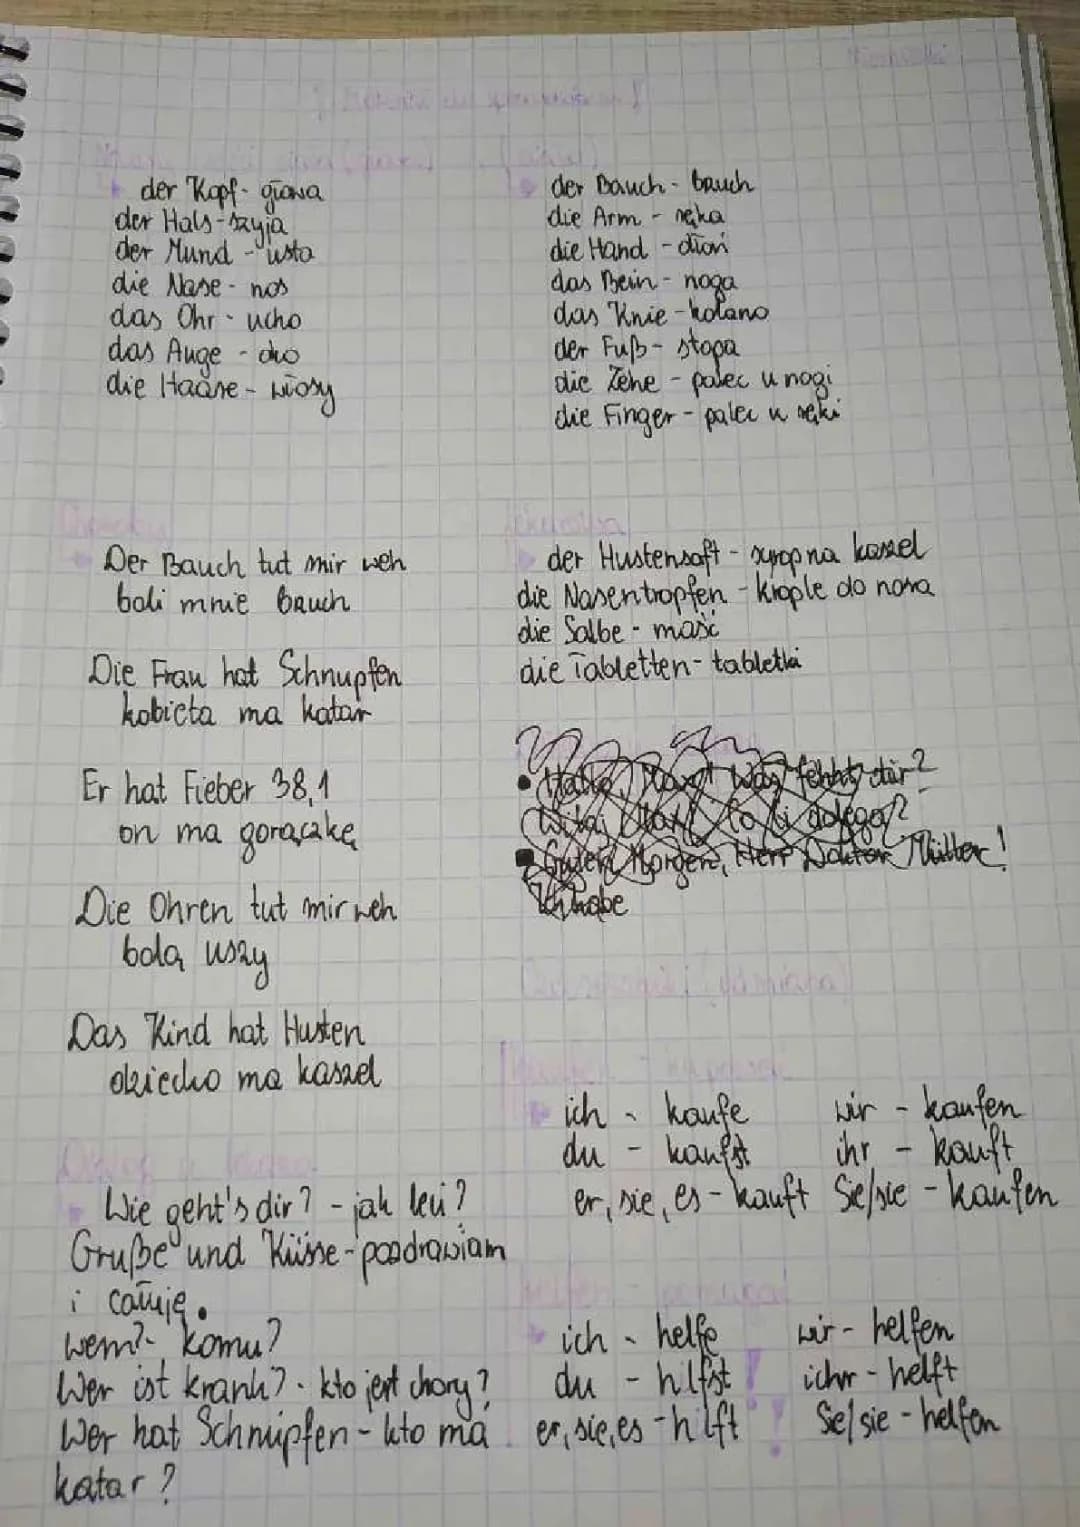 der Kopf - głowa
der Hals - szyja
der Mund - usta
die Nase - nos
das Ohr - ucho
das Auge - oko
die Haare - włosy
der Bauch - brzuch
die Arm - ręka
die Hand - dłoń
das Bein - noga
das Knie - kolano
der Fuß - stopa
die Zehe - palec u nogi
die Finger - palec u ręki
Choroby
Der Bauch tut mir weh
boli mnie brzuch
Die Frau hat Schnupfen
kobieta ma katar
Er hat Fieber 38,1
on ma gorączkę
Die Ohren tut mir weh
bolą uszy
Das Kind hat Husten
dziecko ma kaszel
der Hustensaft - syrop na kaszel
die Nasentropfen - krople do nosa
die Salbe - maść
die Tabletten - tabletki
Hallo, Max! Was fehlt dir?
Witaj Max! Co ci dolega?
Guten Morgen, Herr Doktor Müller!
Ich habe
Wie geht's dir? - jak leci?
Gruße und Küsse - pozdrawiam
i całuję.
wem? - komu?
Wer ist krank? - kto jest chory?
Wer hat Schnupfen - kto ma
katar?
ich - kaufe
wir - kaufen
du - kaufst
ihr - kauft
er, sie, es - kauft
Sie/sie - kaufen
helfen - pomagać
ich - helfe
wir - helfen
du - hilfst !
ichr - helft
er, sie, es - hilft !
Sie/sie - helfen